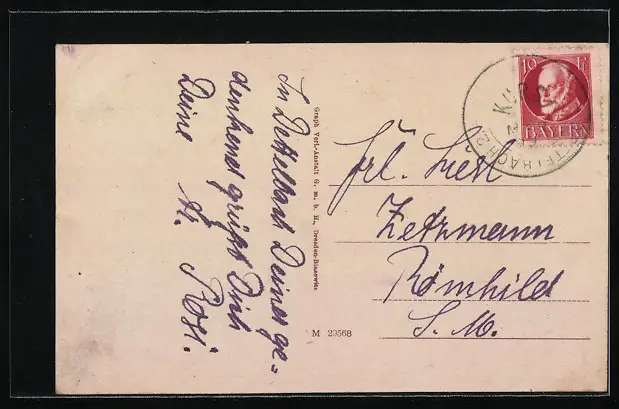 In Dettelbach Deiner ge=
denkend grüßt Dich
Deine Fr. Rosi.
Graph. Verl.-Anstalt G. m. b. H., Dresden-Blasewitz
M 29568
10 Pf
BAYERN
Frl. Liesl
Zetzmann
Römhild
S. M.